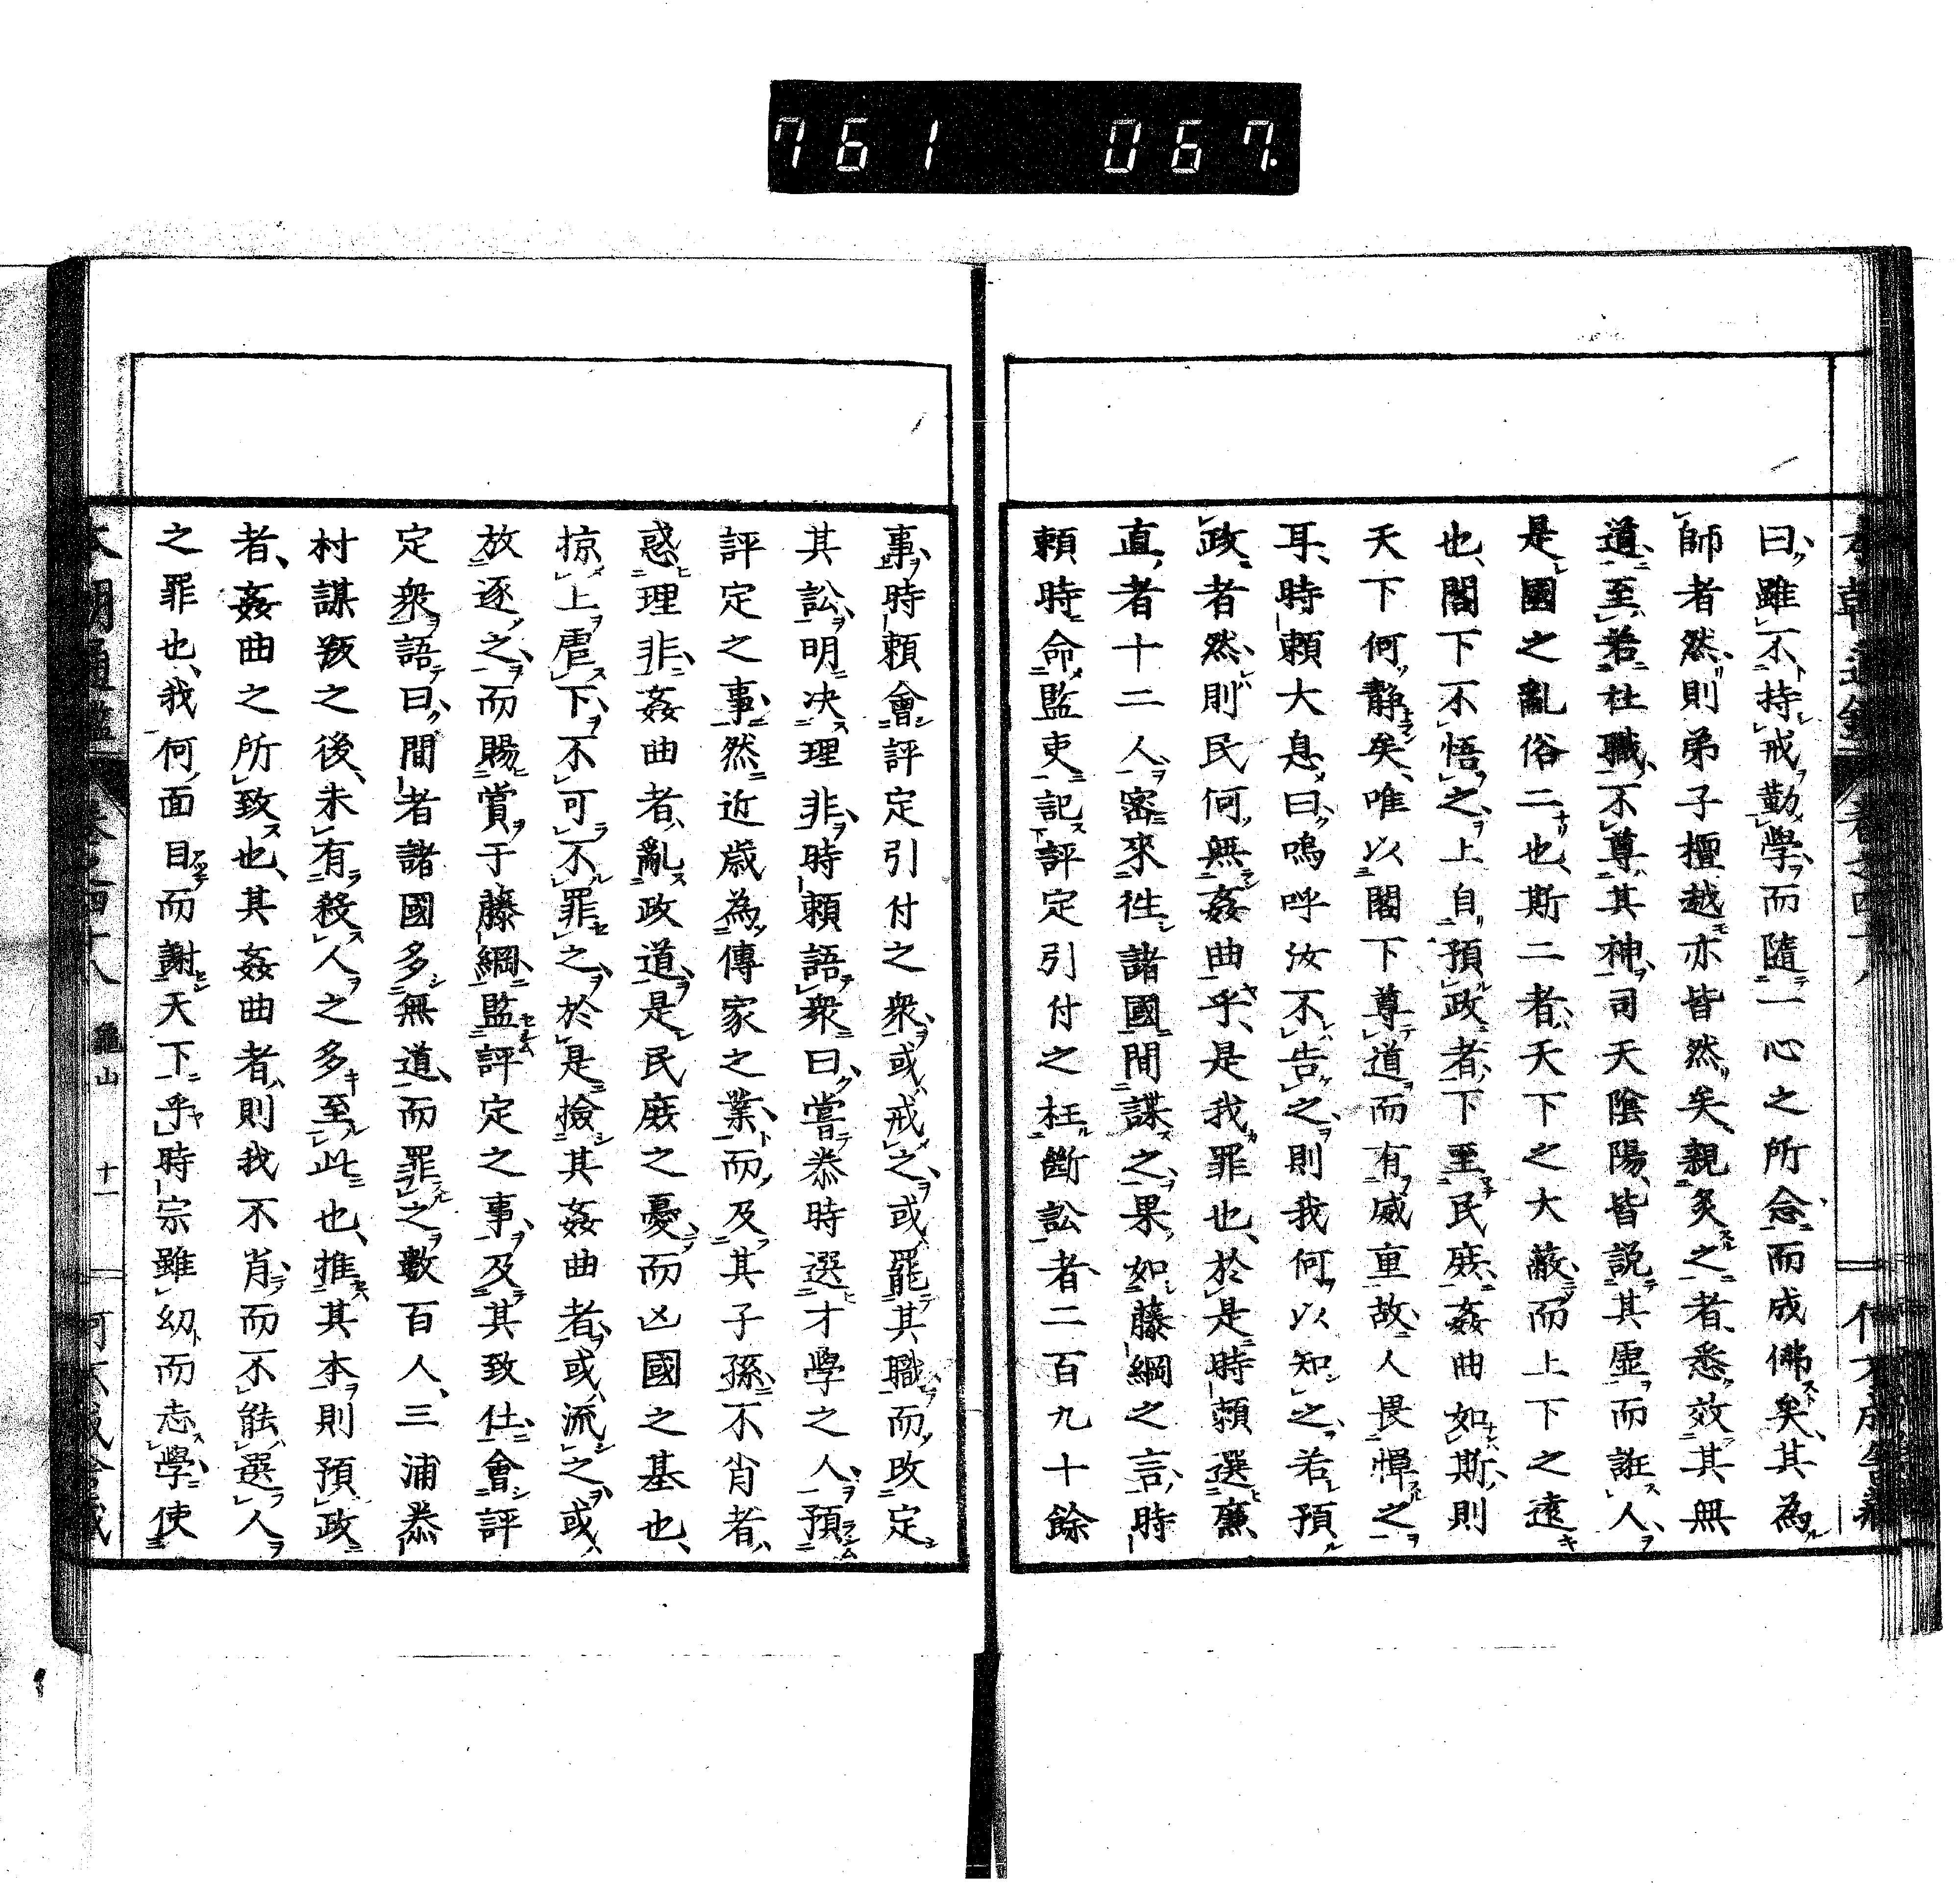 761 067
曰雖不持戒勤學而隨一心之所念而成佛矣其為
師者然則弟子擅越亦皆然矣親炙之者悉效其無
道至若社職不尊其神司天陰陽皆說其虛而誑人
是國之亂俗二也斯二者天下之大蔽而上下之遠
也閤下不悟之上自預政者下至民庶姦曲如斯則
天下何靜矣唯以閤下尊道而有威重故人畏憚之
耳時賴大息曰嗚呼汝不告之則我何以知之若預
政者然則民何無姦曲乎是我罪也於是時賴選廉
直者十二人密來徃諸國間諜之果如藤綱之言時
賴時命監吏記評定引付之枉斷訟者二百九十餘
事時賴會評定引付之衆或戒之或罷其職而改定
其訟明决理非時賴語衆曰嘗泰時選才學之人預
評定之事然近歲為傳家之業而及其子孫不肖者
惑理非姦曲者亂政道是民庶之憂而凶國之基也
掠上虐下不可不罪之於是撿其姦曲者或流之或
放逐之而賜賞于藤綱監評定之事及其致仕會評
定衆語曰間者諸國多無道而罪之數百人三浦泰
村謀叛之後未有殺人之多至此也推其本則預政
者姦曲之所致也其姦曲者則我不肖而不能選人
之罪也我何面目而謝天下乎時宗雖幼而志學使
本朝通鑑 卷之四十八 龜山 十一